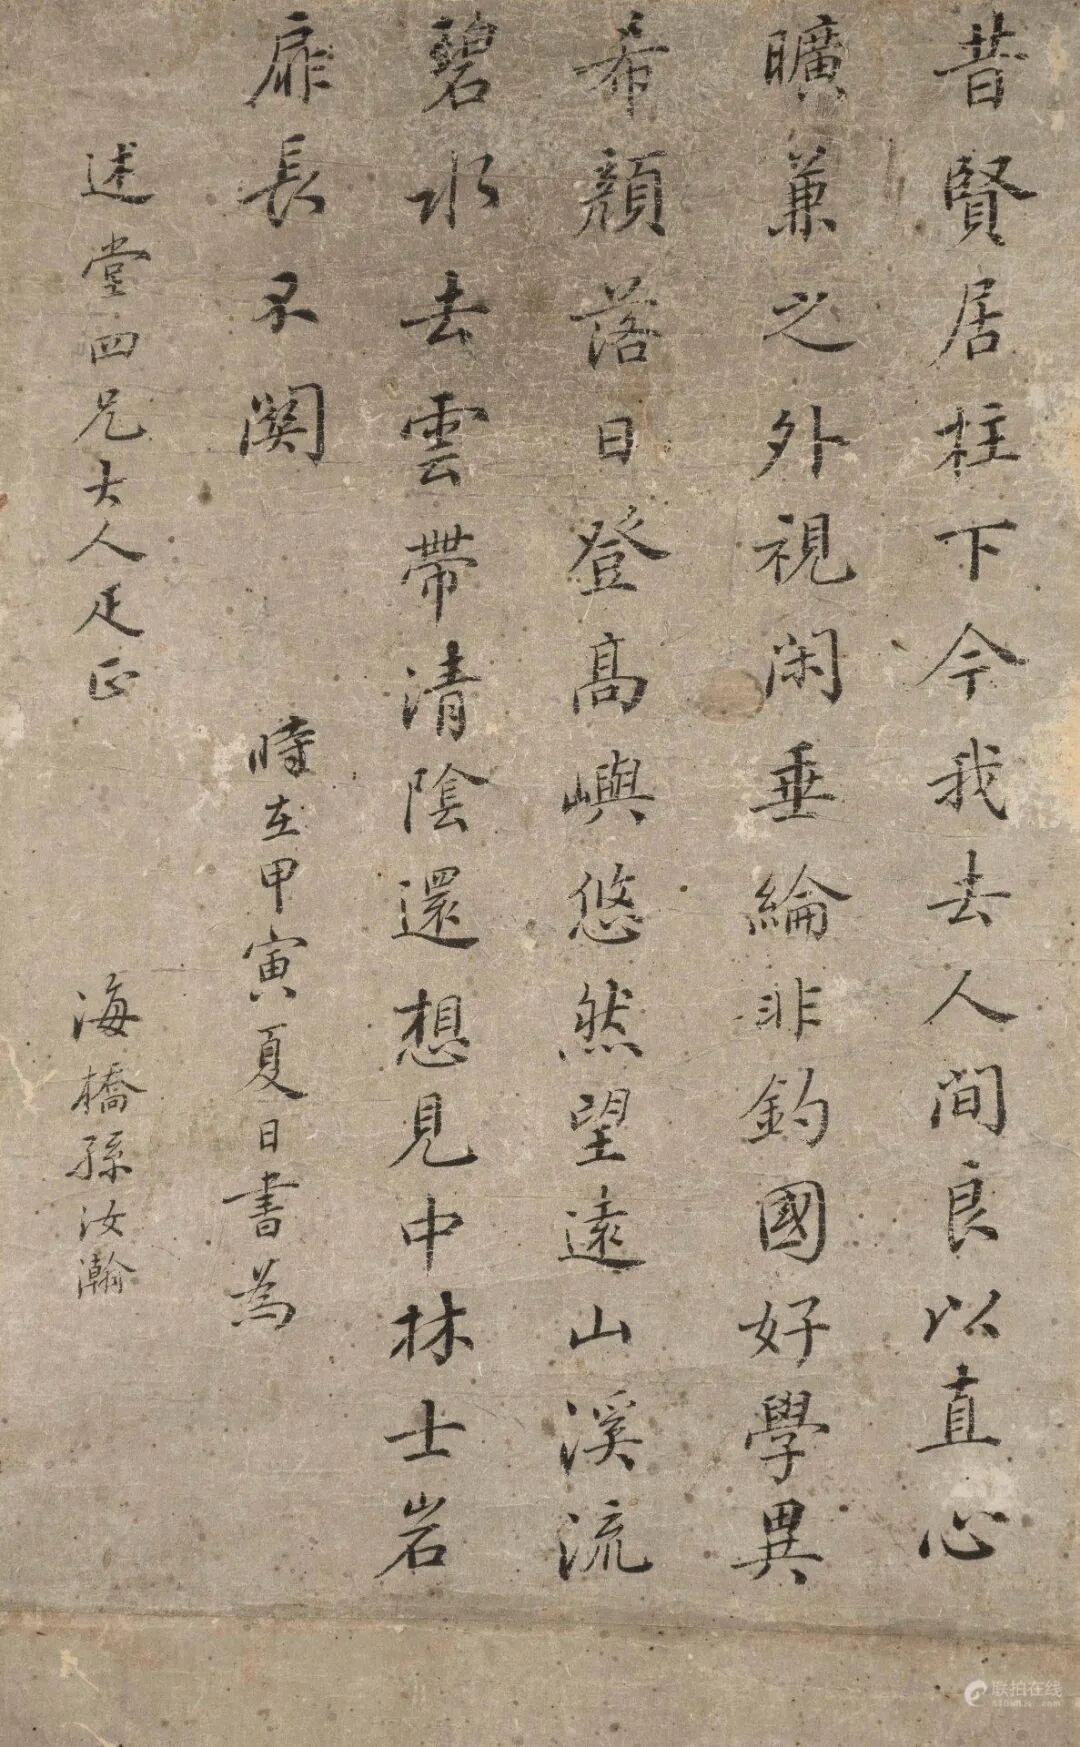 昔賢居柱下今我去人間良以直心
曠兼之外視閑垂綸非釣國好學異
希顏落日登高嶼悠然望遠山溪流
碧水去雲帶清陰還想見中林士岩
扉長不関
時在甲寅夏日書為
述堂四兄大人疋正
海橋孫汝瀚
联拍在线